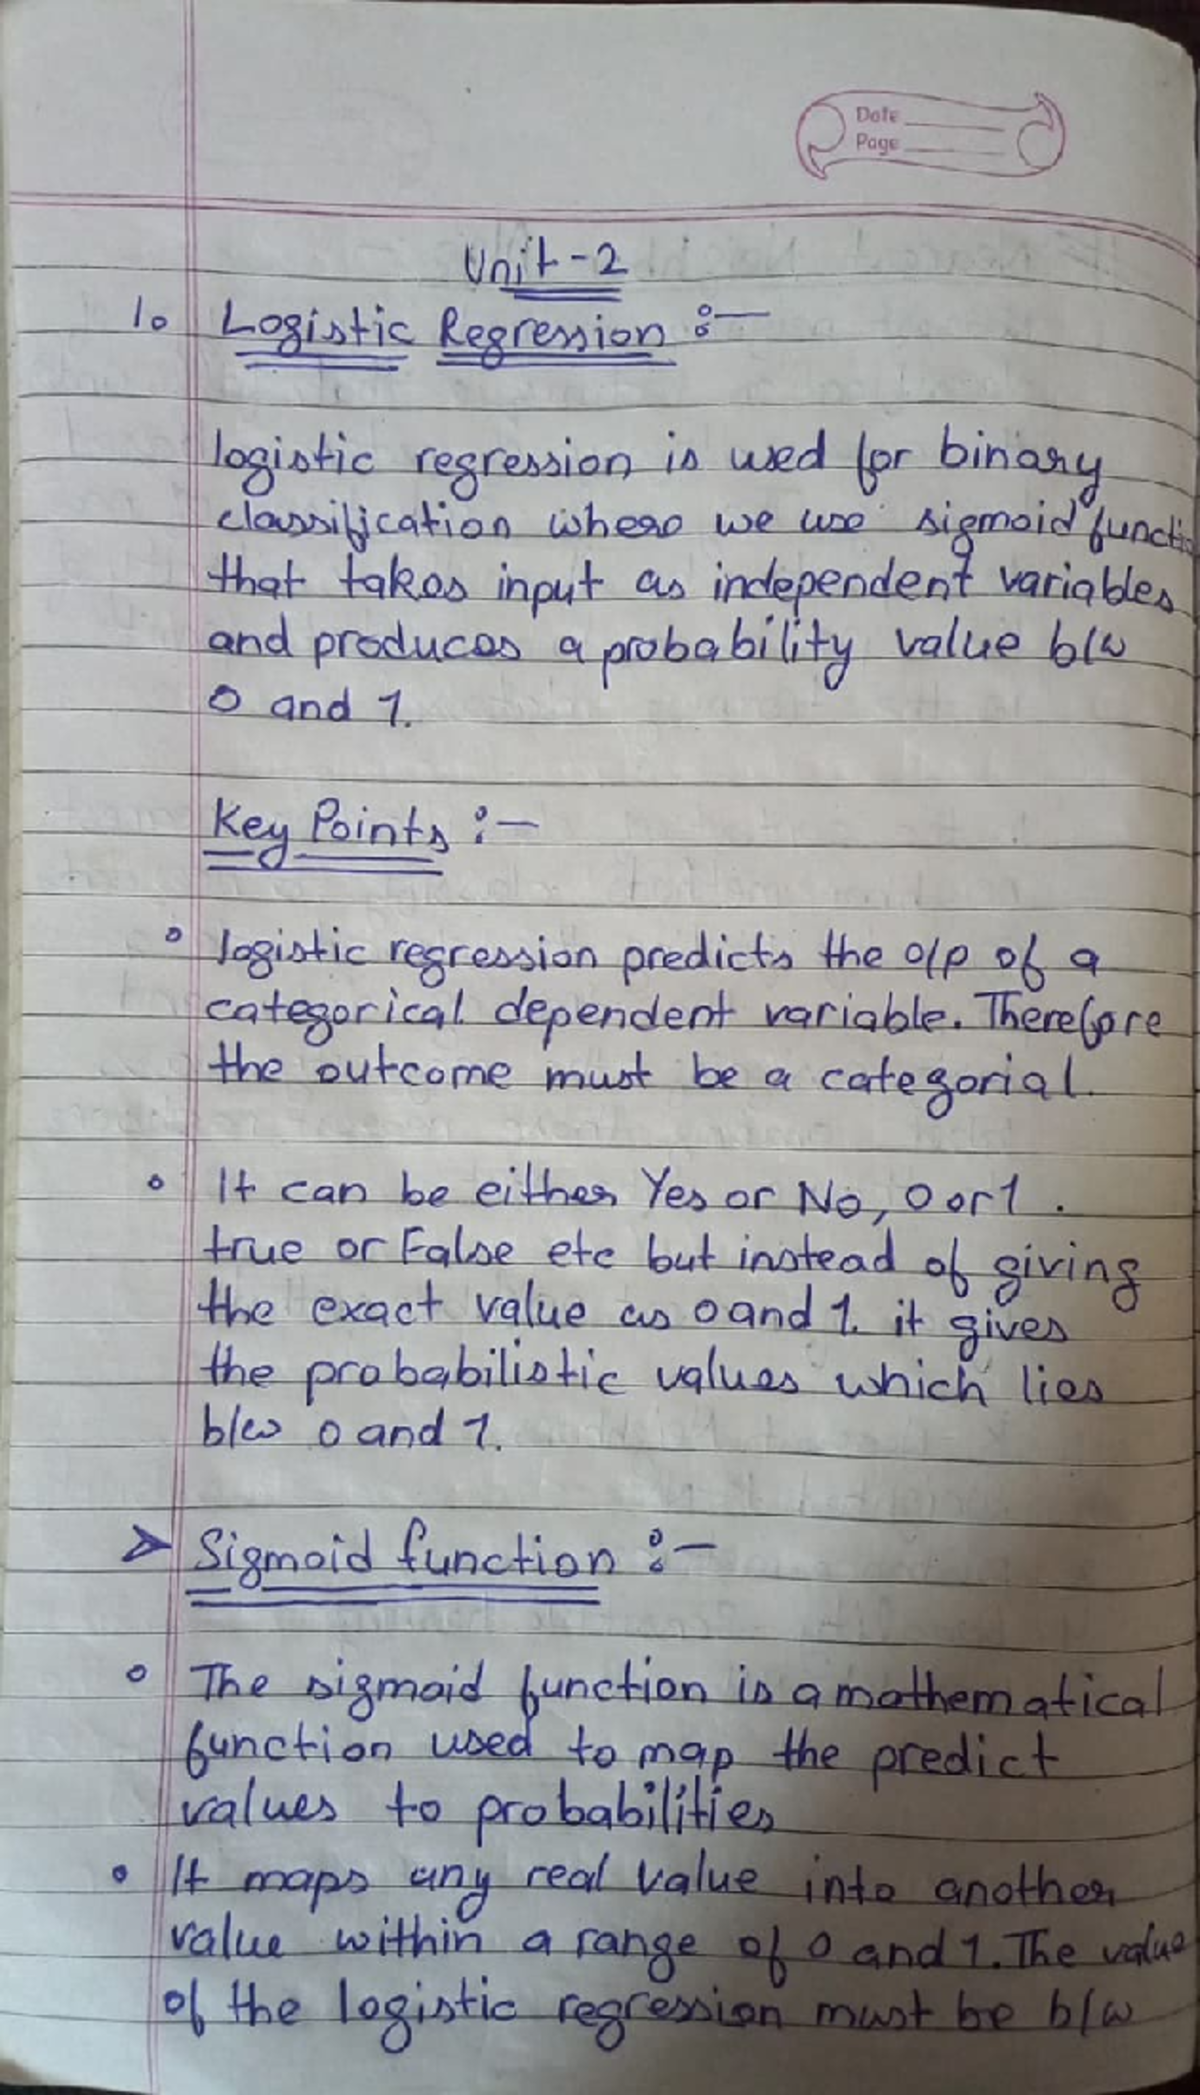 Date
Page
Unit-2
1. Logistic Regression :-
logistic regression is used for binary
classification where we use sigmoid functi
that takes input as independent variables
and produces a probability value b/w
0 and 1.
Key Points :-
logistic regression predicts the o/p of a
categorical dependent variable. Therefore
the outcome must be a categorial.
It can be either Yes or No, 0 or 1.
true or False etc but instead of giving
the exact value as 0 and 1. it gives
the probabilistic values which lies
b/w 0 and 1.
➢ Sigmoid function :-
The sigmoid function is a mathematical
function used to map the predict
values to probabilities
It maps any real value into another
value within a range of 0 and 1. The value
of the logistic regression must be b/w